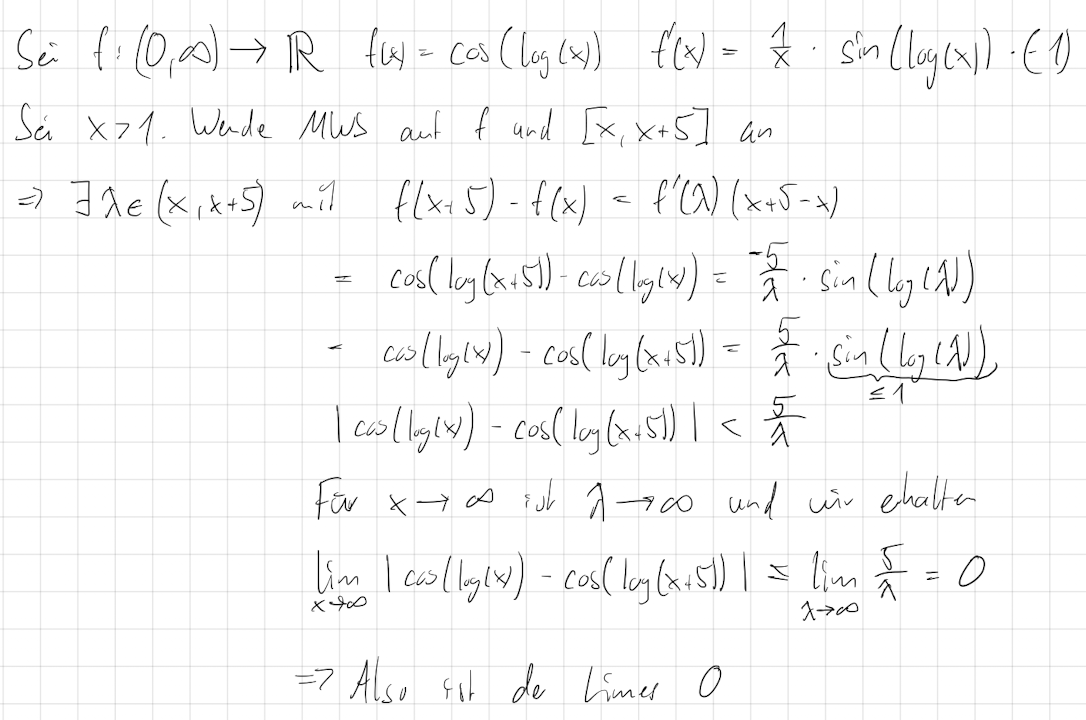 Sei f: (0,∞) → ℝ f(x) = cos(log(x)) f'(x) = 1/x · sin(log(x)) · (-1)
Sei x>1. Wende MWS auf f und [x, x+5] an
=> ∃λ∈(x, x+5) mit f(x+5) - f(x) = f'(λ)(x+5-x)
= cos(log(x+5)) - cos(log(x)) = -5/λ · sin(log(λ))
= cos(log(x)) - cos(log(x+5)) = 5/λ · sin(log(λ))
≤ 1
|cos(log(x)) - cos(log(x+5))| < 5/λ
Für x → ∞ ist λ → ∞ und wir erhalten
lim x→∞ |cos(log(x)) - cos(log(x+5))| ≤ lim λ→∞ 5/λ = 0
=> Also ist de Limes 0